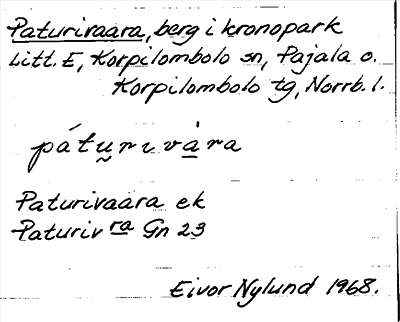 Paturivaara, berg i kronopark
Litt. E, Korpilombolo sn, Pajala o.
Korpilombolo tg, Norrb. l.
pátu̮rıvȧ̲ra
Paturivaara ek
Paturivra Gn 23
Eivor Nylund 1968.